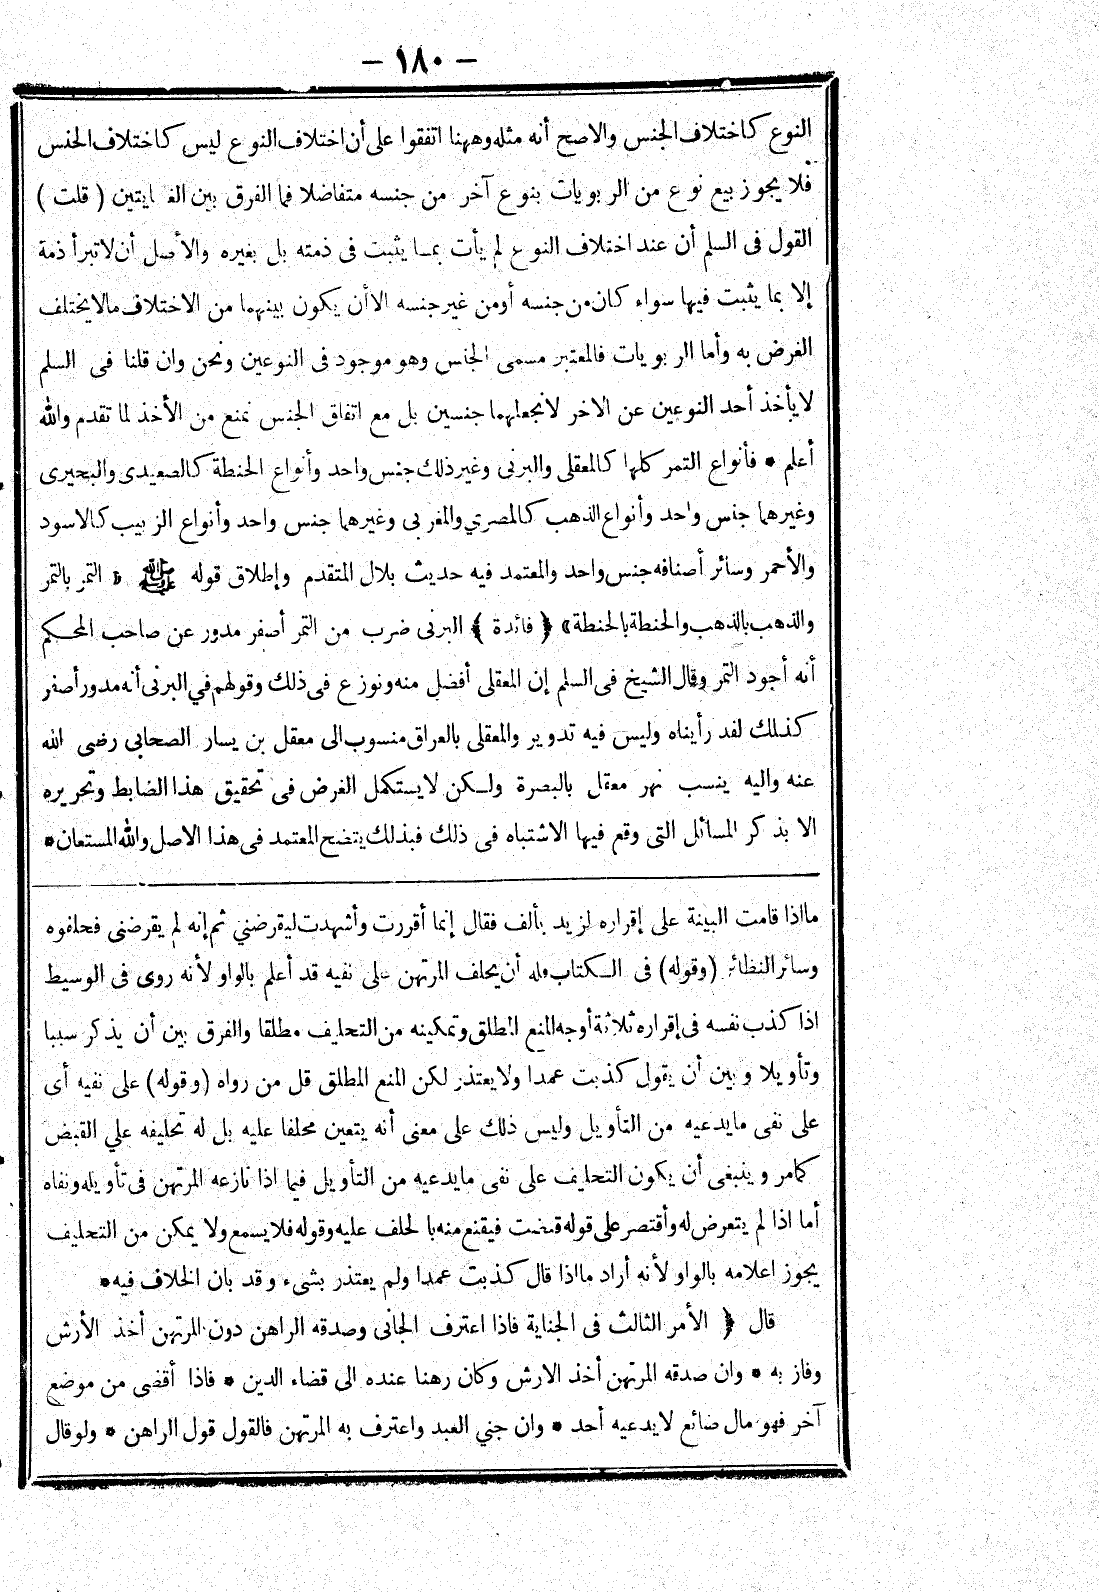 - ١٨٠ -
النوع كاختلاف الجنس والاصح أنه مثله وههنا اتفقوا على أن اختلاف النوع ليس كاختلاف الجنس
فلا يجوز بيع نوع من الربويات بنوع آخر من جنسه متفاضلا فما الفرق بين الغايتين ( قلت )
القول فى السلم أن عند اختلاف النوع لم يأت بما يثبت فى ذمته بل بغيره والأصل أن لا تبرأ ذمة
إلا بما يثبت فيها سواء كان من جنسه أو من غير جنسه الا أن يكون بينهما من الاختلاف مالا يختلف
الغرض به وأما الربويات فالمعتبر مسمى الجنس وهو موجود فى النوعين ونحن وان قلنا فى السلم
لا يأخذ أحد النوعين عن الاخر لا نجعلهما جنسين بل مع اتفاق الجنس نمنع من الأخذ لما تقدم والله
أعلم * فأنواع التمر كلها كالمعقلى والبرنى وغير ذلك جنس واحد وأنواع الحنطة كالصعيدى والبحيرى
وغيرهما جنس واحد وأنواع الذهب كالمصري والمغربى وغيرهما جنس واحد وأنواع الزبيب كالاسود
والأحمر وسائر أصنافه جنس واحد والمعتمد فيه حديث بلال المتقدم وإطلاق قوله ﷺ « التمر بالتمر
والذهب بالذهب والحنطة بالحنطة» ﴿ فائدة ﴾ البرنى ضرب من التمر أصفر مدور عن صاحب المحكم
أنه أجود التمر وقال الشيخ فى السلم إن المعقلى أفضل منه ونوزع فى ذلك وقولهم في البرنى أنه مدور أصفر
كذلك لقد رأيناه وليس فيه تدوير والمعقلى بالعراق منسوب الى معقل بن يسار الصحابى رضى الله
عنه واليه ينسب نهر معقل بالبصرة ولكن لا يستكمل الغرض فى تحقيق هذا الضابط وتحريره
الا بذكر المسائل التى وقع فيها الاشتباه فى ذلك فبذلك يتضح المعتمد فى هذا الاصل والله المستعان*
ما اذا قامت البينة على إقراره لزيد بألف فقال إنما أقررت وأشهدت ليقرضني ثم إنه لم يقرضنى فحلفوه
وسائر النظائر (وقوله) فى الكتاب فله أن يحلف المرتهن على نفيه قد أعلم بالواو لأنه روى فى الوسيط
اذا كذب نفسه فى إقراره ثلاثة أوجه المنع المطلق وتمكينه من التحليف مطلقا والفرق بين أن يذكر سببا
وتأويلا وبين أن يقول كذبت عمدا ولا يعتذر لكن المنع المطلق قل من رواه (وقوله) على نفيه أى
على نفى ما يدعيه من التأويل وليس ذلك على معنى أنه يتعين محلفا عليه بل له تحليفه علي القبض
كمامر وينبغى أن يكون التحليف على نفى مايدعيه من التأويل فيما اذا نازعه المرتهن فى تأويله ونفاه
أما اذا لم يتعرض له وأقتصر على قوله قبضت فيقنع منه بالحلف عليه وقوله فلا يسمع ولا يمكن من التحليف
يجوز اعلامه بالواو لأنه أراد ما اذا قال كذبت عمدا ولم يعتذر بشىء وقد بان الخلاف فيه*
قال ﴿ الأمر الثالث فى الجناية فاذا اعترف الجانى وصدقه الراهن دون المرتهن أخذ الأرش
وفاز به * وان صدقه المرتهن أخذ الارش وكان رهنا عنده الى قضاء الدين * فاذا أقضى من موضع
آخر فهو مال ضائع لا يدعيه أحد * وان جني العبد واعترف به المرتهن فالقول قول الراهن * ولو قال